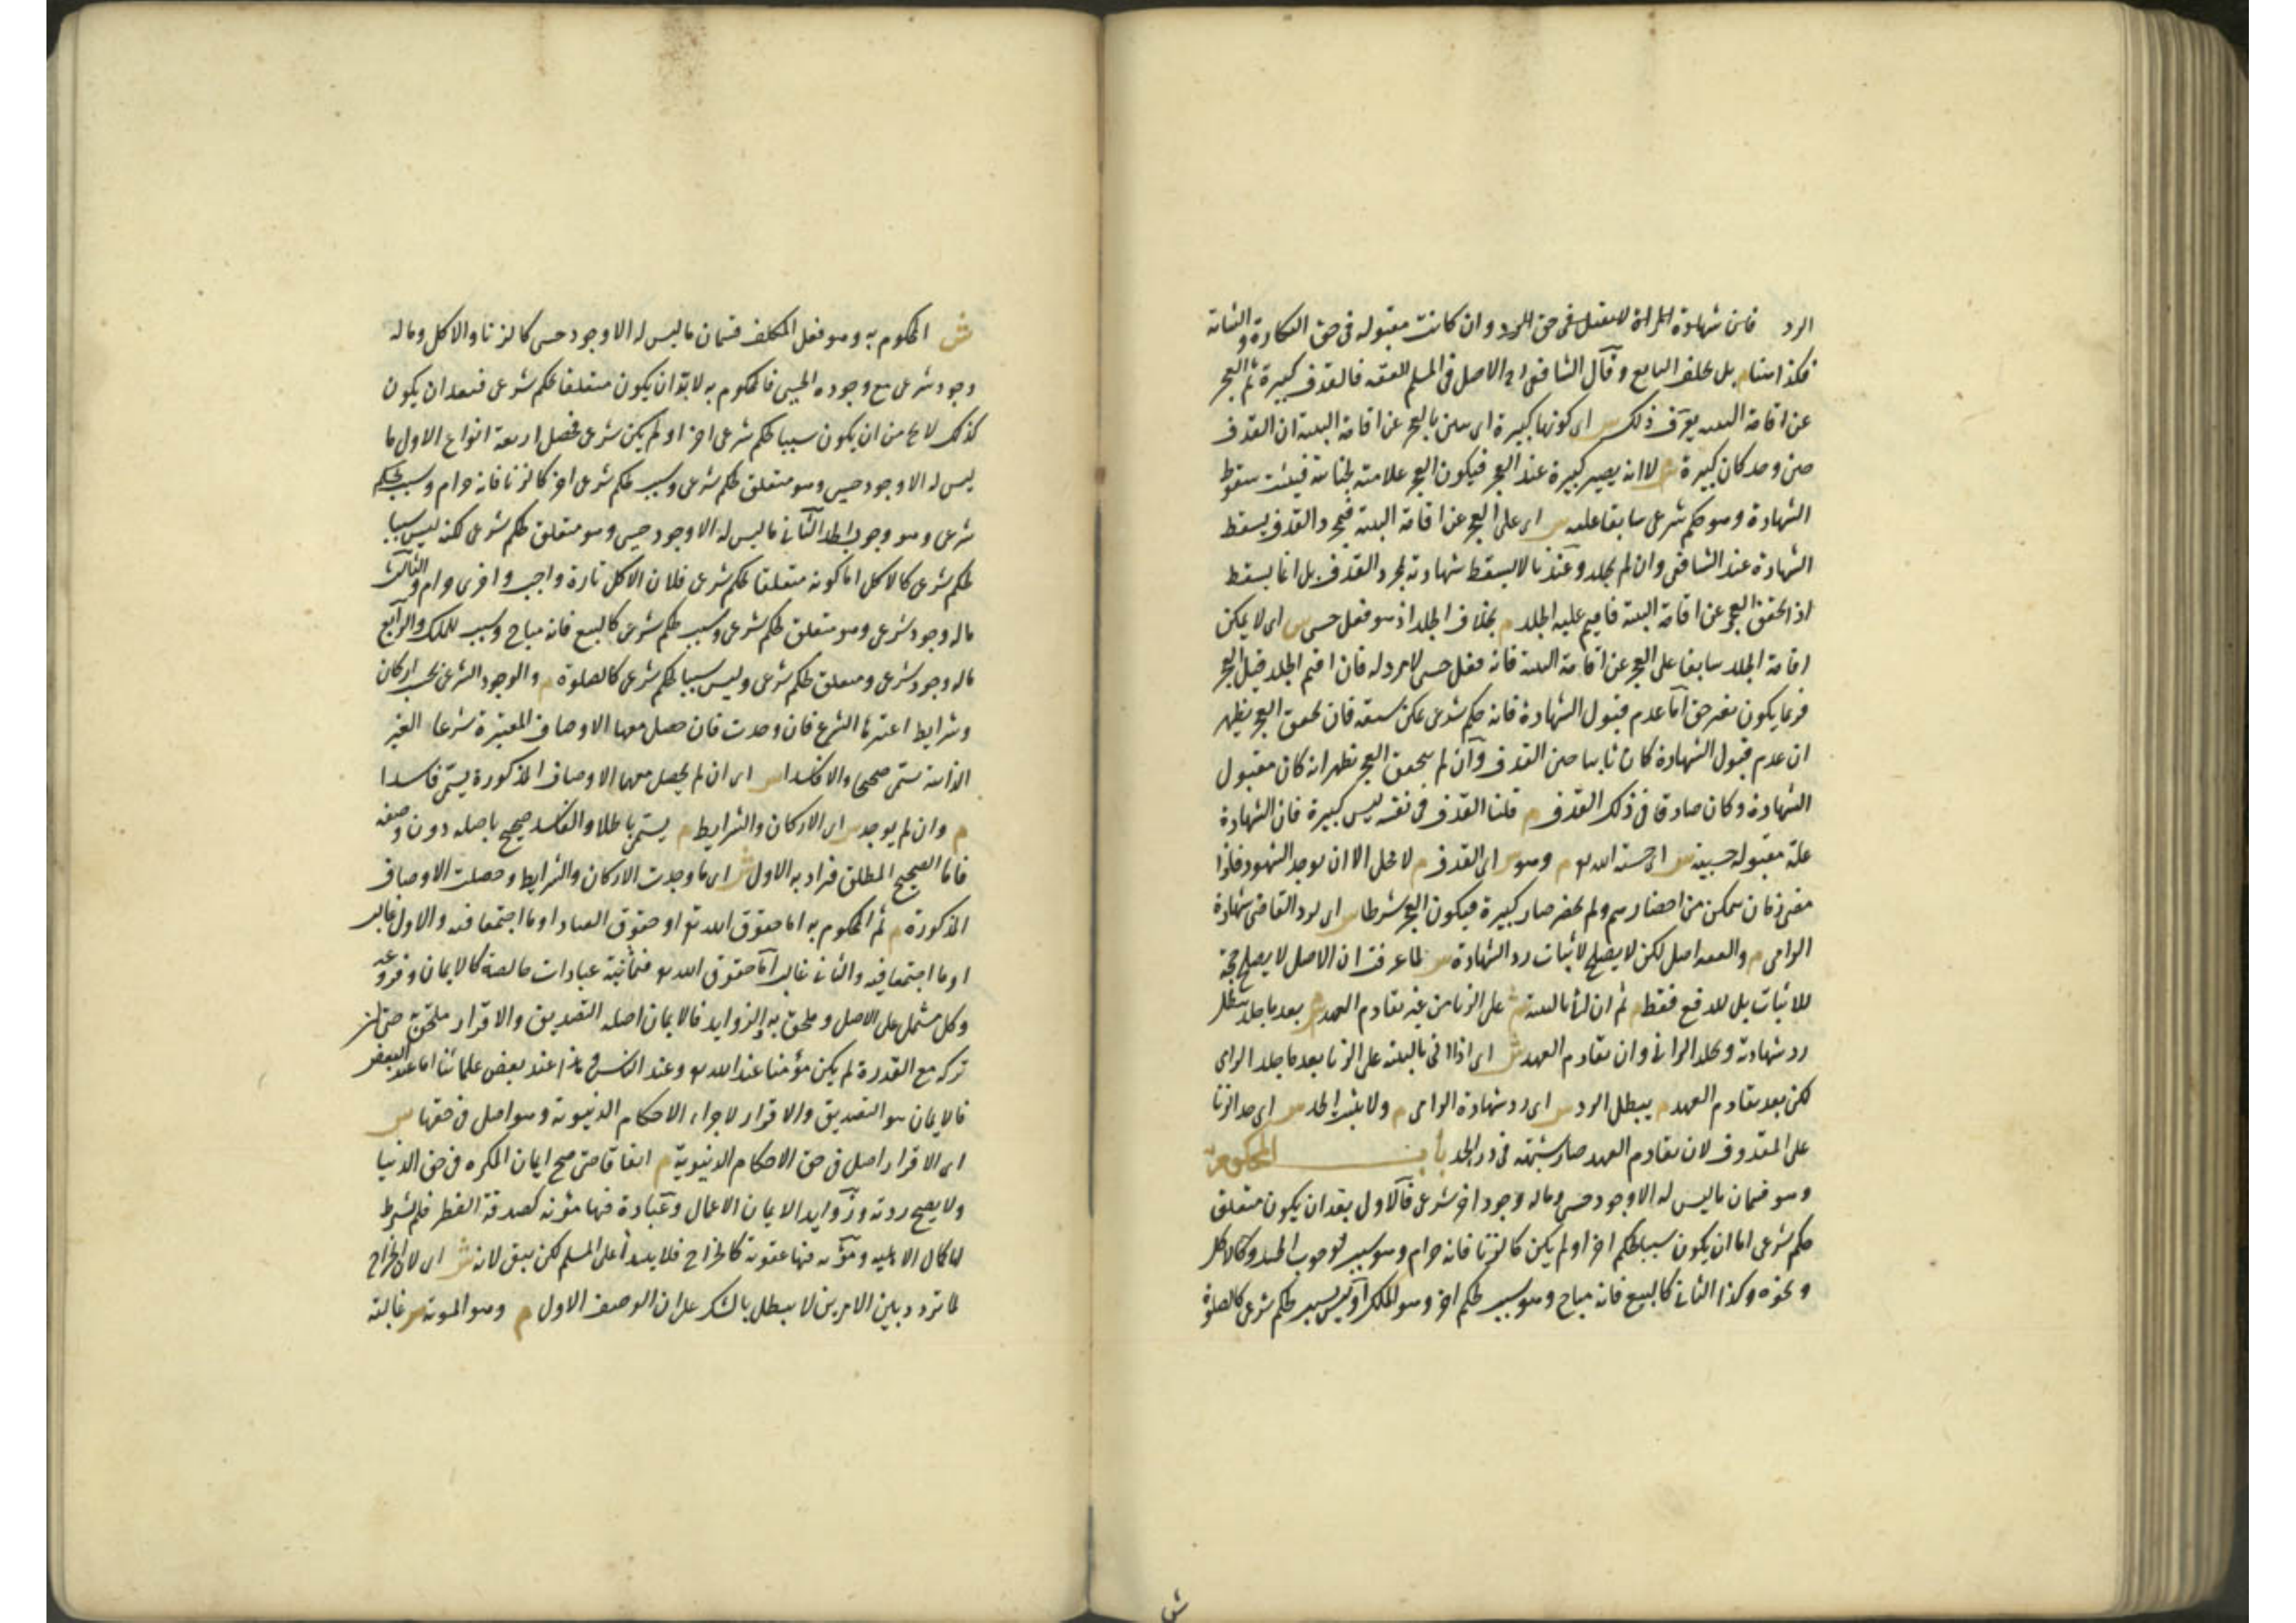 الرد فان شهادة المراة لا تقبل فى حق الرد وان كانت مقبولة فى حق البكارة والثيابة
فكذا هنا م بل يحلف البايع وقال الشافعى الاصل فى المسلم العفة فالقذف كبيرة ثم العجز
عن اقامة البينة يعرف ذلك س اى كونها كبيرة اى يتبين بالعجز عن اقامة البينة ان القذف
حين وجد كان كبيرة ش لا انه يصير كبيرة عند العجز فيكون العجز علامة لجناية فيثبت سقوط
الشهادة وهو حكم شرعى سابقا عليه س اى على العجز عن اقامة البينة فبمجرد القذف يسقط
الشهادة عند الشافعى وان لم يجلد وعندنا لا يسقط شهادته بمجرد القذف بل انما يسقط
اذا تحقق العجز عن اقامة البينة فاقيم عليه الجلد م بخلاف الجلد اذ هو فعل حسى س اى لا يمكن
اقامة الجلد سابقا على العجز عن اقامة البينة فانه فعل حسى لا مرد له فان اقيم الجلد قبل العجز
فربما يكون بغير حق اما عدم قبول الشهادة فانه حكم شرعى يمكن سبقه فان تحقق العجز يظهر
ان عدم قبول الشهادة كان ثابتا حين القذف وان لم يتحقق العجز تظهر انه كان مقبول
الشهادة وكان صادقا فى ذلك القذف م قلنا القذف فى نفسه ليس كبيرة فان الشهادة
عليه مقبولة حسبة س اى حسبة لله تع م وهو س اى القذف م لا يحل الا ان يوجد الشهود فاذا
مضى زمان يتمكن من احضارهم ولم يحضر صار كبيرة فيكون العجز شرطا س اى لرد القاضى شهادة
الرامى م والعفة اصل لكن لا يصلح لاثبات رد الشهادة س لما عرفت ان الاصل لا يصلح حجة
للاثبات بل للدفع فقط م ثم ان اتى بالبينة ش على الزنا من غير تقادم العهد م بعد ما جلد يبطل
رد شهادته ويجلد الزانى وان تقادم العهد ش اى اذا اتى بالبينة على الزنا بعد ما جلد الرامى
لكن بعد تقادم العهد م يبطل الرد س اى رد شهادة الرامى م ولا يثبت الحد س اى حد الزنا
على المقذوف لان تقادم العهد صار شبهة فى درء الحد باب المحكوم به
وهو قسمان ما ليس له الا وجود حسى وما له وجود اخر شرعى فالاول بعد ان يكون متعلق
حكم شرعى اما ان يكون سببا لحكم اخر او لم يكن كالزنا فانه حرام وهو سبب لوجوب الحد وكالاكل
ونحوه وكذا الثانى كالبيع فانه مباح وهو سبب لحكم اخر وهو الملك او ليس بسبب لحكم شرعى كالصلوة
ش
ش المحكوم به وهو فعل المكلف قسمان ما ليس له الا وجود حسى كالزنا والاكل وما له
وجود شرعى مع وجوده الحسى فالمحكوم به لا بد ان يكون متعلقا لحكم شرعى فبعد ان يكون
كذلك لا يخ من ان يكون سببا لحكم شرعى اخر او لم يكن شرعى فحصل اربعة انواع الاول ما
ليس له الا وجود حسى وهو متعلق لحكم شرعى وسبب لحكم شرعى اخر كالزنا فانه حرام وسبب لحكم
شرعى وهو وجوب الحد الثانى ما ليس له الا وجود حسى وهو متعلق لحكم شرعى لكنه ليس سببا
لحكم شرعى كالاكل اما كونه متعلقا لحكم شرعى فلان الاكل تارة واجب واخرى حرام والثالث
ما له وجود شرعى وهو متعلق لحكم شرعى وسبب لحكم شرعى كالبيع فانه مباح وسبب للملك والرابع
ما له وجود شرعى ومتعلق لحكم شرعى وليس سببا لحكم شرعى كالصلوة م والوجود الشرعى بحسب اركان
وشرايط اعتبرها الشرع فان وجدت فان حصل معها الاوصاف المعتبرة شرعا الغير
الذاتية سمى صحيحا والا فاسدا س اى ان لم يحصل معها الاوصاف المذكورة يسمى فاسدا
م وان لم يوجد س اى الاركان والشرايط م يسمى باطلا والفاسد صحيح باصله دون وصفه
فاما الصحيح المطلق فيراد به الاول ش اى ما وجدت الاركان والشرايط وحصلت الاوصاف
المذكورة م ثم المحكوم به اما حقوق الله تع او حقوق العباد او ما اجتمعا فيه والاول غالب
او ما اجتمعا فيه والثانى غالب اما حقوق الله تع فثمانية عبادات خالصة كالايمان وفروعه
وكل مشتمل على الاصل وملحق به والزوايد فالايمان اصله التصديق والاقرار ملحق به حتى ان
تركه مع القدرة لم يكن مؤمنا عند الله تع وعند الناس وهذا عند بعض علمائنا اما عند البعض
فالايمان هو التصديق والاقرار لاجراء الاحكام الدنيوية وهو اصل فى حقها س
اى الاقرار اصل فى حق الاحكام الدنيوية م اتفاقا حتى صح ايمان المكره فى حق الدنيا
ولا يصح ردته وزوايد الايمان الاعمال وعبادة فيها مؤنة كصدقة الفطر فلم يشترط
لها كمال الاهلية ومؤنة فيها عقوبة كالخراج فلا يبتدأ على المسلم لكن يبقى لانه ش اى لان الخراج
لما تردد بين الامرين لا يبطل بالشك على ان الوصف الاول م وهو المونة س غالبة